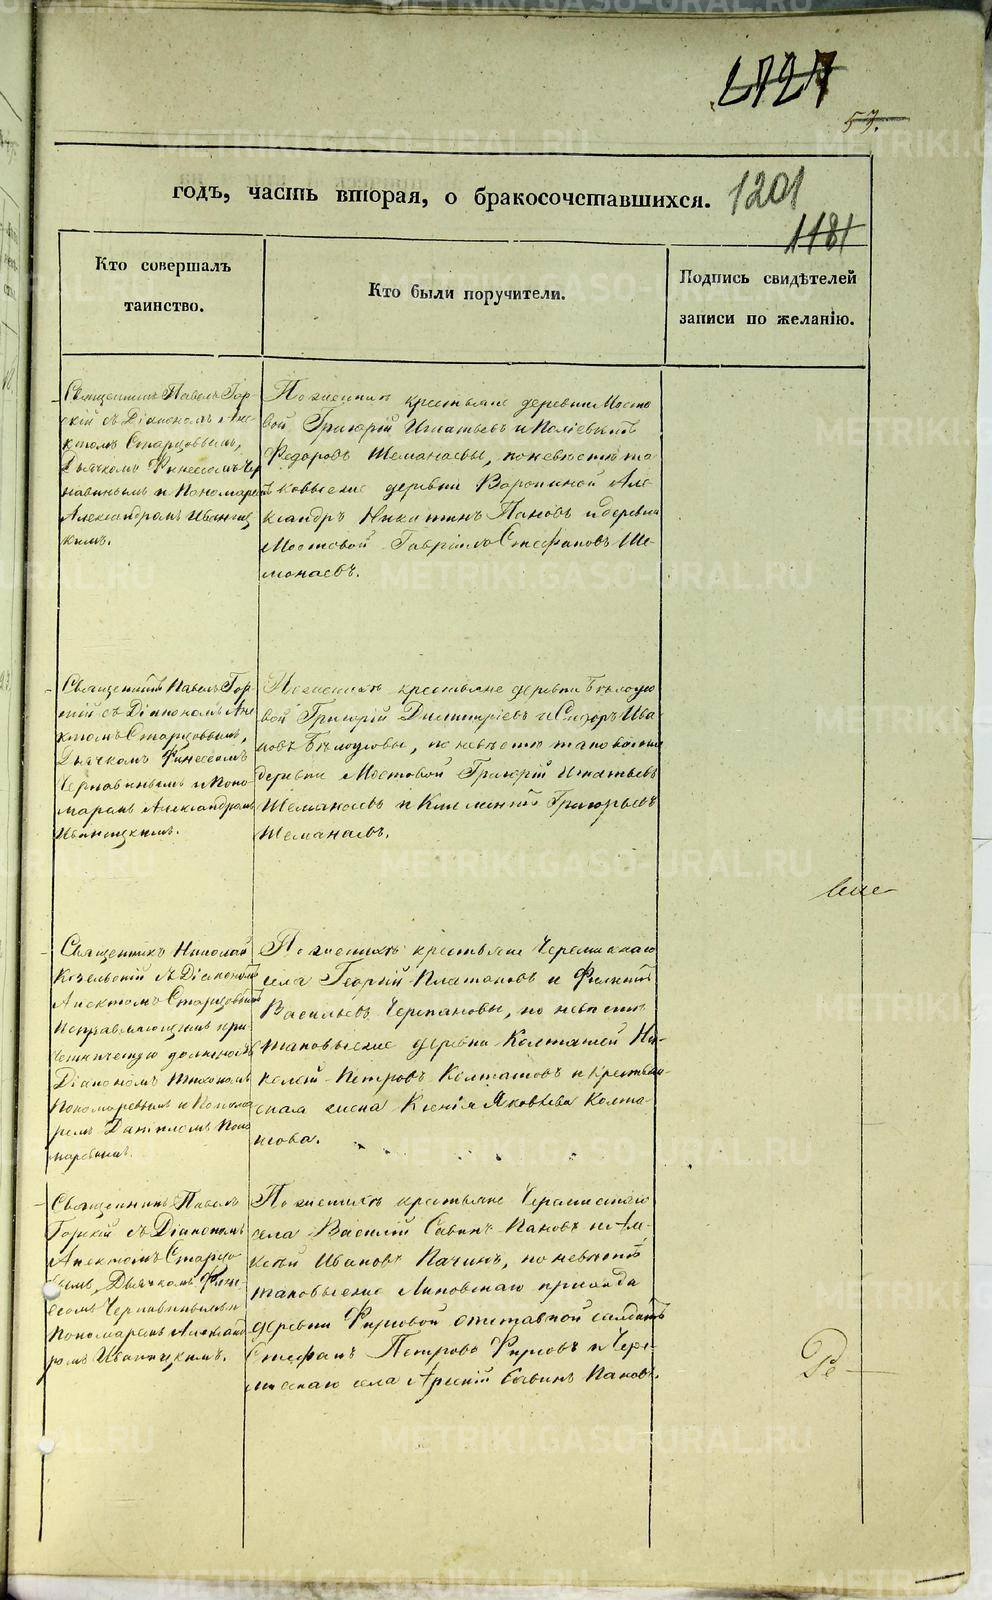 2727
53.
годъ, часть вторая, о бракосочетавшихся.
1201
1181
Кто совершалъ
таинство.
Кто были поручители.
Подпись свидѣтелей
записи по желанію.
Священникъ Павелъ Гор-
скій съ Діакономъ Ане-
ктомъ Старцовымъ,
Дьячкомъ Финеесомъ Чер
навинымъ и Пономаремъ
Александромъ Иваниц
кимъ.
По женихѣ крестьяне деревни Мосто
вой Григорій Игнатьевъ и
Федоровъ Шеманаевы, по невѣстѣ та-
ковые же деревни Ворониной Але-
ксандръ Никитинъ Пановъ и деревни
Мостовой Гавріилъ Стефановъ Ше-
манаевъ.
Священникъ Павелъ Гор-
скій съ Діакономъ Ане
ктомъ Старцовымъ,
Дьячкомъ Финеесомъ
Чернавинымъ и Поно-
маремъ Александромъ
Иваницкимъ.
По женихѣ крестьяне деревни Бѣлоусо
вой Григорій Димитріевъ и Сидоръ Ива
новъ Бѣлоусовы, по невѣстѣ таковые же
деревни Мостовой Григорій Игнатьевъ
Шеманаевъ и Климентій Григорьевъ
Шеманаевъ.
Священникъ Николай
Козельскій съ Діакономъ
Анектомъ Старцовымъ
Исправляющимъ при-
четническую должность
Діакономъ
Пономаревымъ и Понома
ремъ Даниломъ Поно
маревымъ.
По женихѣ крестьяне Черемискаго
села Георгій Платоновъ и
Васильевъ Черпановы, по невѣстѣ
таковые же деревни Колташей Ни-
колай Петровъ Колташовъ и крестьян
ская жена Ксенія Яковлева Колта-
шова.
Священникъ Павелъ
Горскій съ Діакономъ
Анектомъ Старцо
вымъ, Дьячкомъ Фин-
еесомъ Чернавинымъ и
Пономаремъ Александ
ромъ Иваницкимъ.
По женихѣ крестьяне Черемискаго
села Василій Савинъ Пановъ и Але-
ксѣй Ивановъ Пачинъ, по невѣстѣ
таковые же Липовскаго прихода
деревни Фирсовой отставной солдатъ
Стефанъ Петровъ Фирсовъ и Чере-
мискаго села Арсеній Савинъ Пановъ.
METRIKI.GASO-URAL.RU